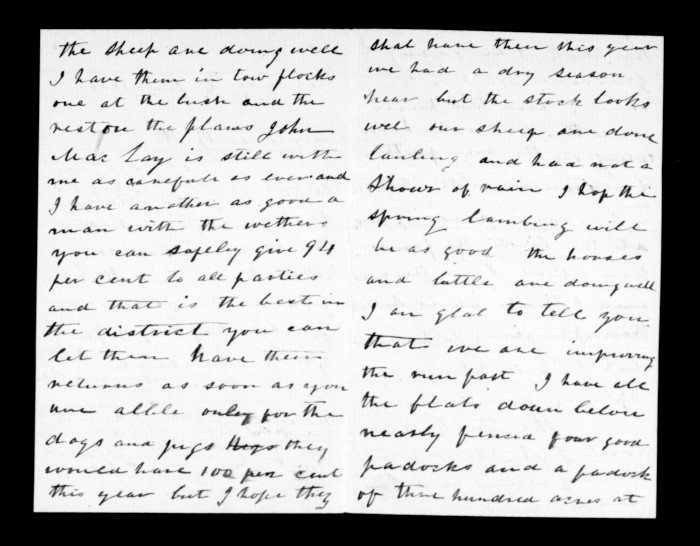 the sheep are doing well
I have them in tow flocks
one at the bush and the
rest on the plaws John
Mac Lay is still with
me as carefull as ever and
I have another as good a
man with the wethers
you can safeley give 94
per cent to all parties
and that is the best in
the district you can
let them have their
returns as soon as you
are allble only for the
dogs and pigs Hogs they
would have 100 per cent
this year but I hope they
shal have then this year
we had a dry season
hear but the stock looks
wel our sheep are done
lambing and had not a
Shower of rain I hop the
spring lambing will
be as good the horses
and cattle are doing well
I am glad to tell you
that we are improving
the run fast I have all
the flats down below
nearly fensed four good
padocks and a padock
of three hundred acres at